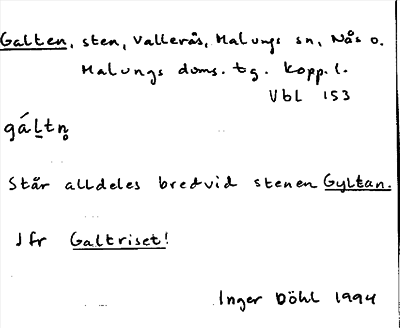 Galten, sten, Vallerås, Malungs sn, Nås o.
Malungs doms. tg. Kopp. l.
Vbl 153
gáltn̥
Står alldeles bredvid stenen Gyltan.
Jfr Galtriset!
Inger Döhl 1994